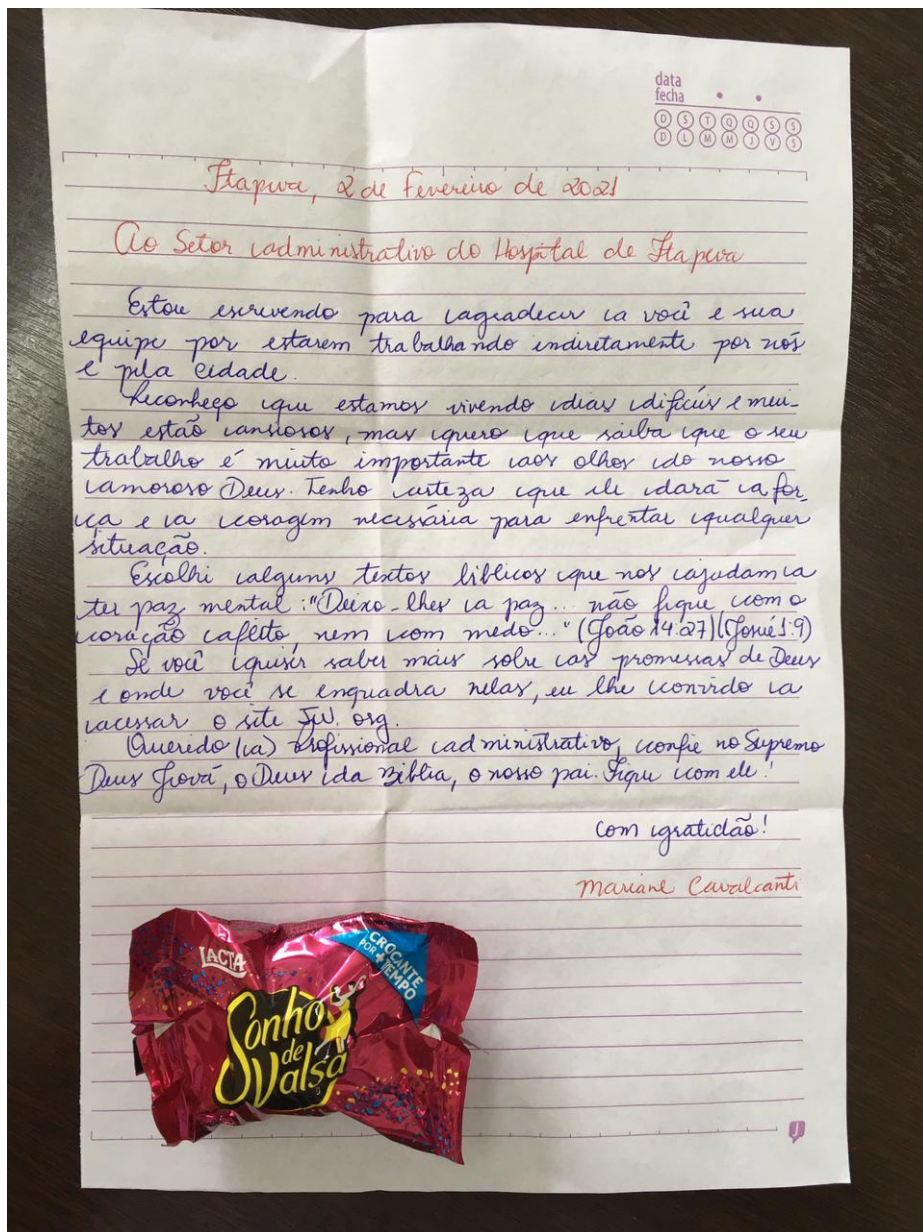 data
fecha
D S T Q Q S S
D L M M J V S
Itapeva, 2 de Fevereiro de 2021
Ao Setor administrativo do Hospital de Itapeva
Estou escrevendo para agradecer a você e sua
equipe por estarem trabalhando indiretamente por nós
e pela cidade.
Reconheço que estamos vivendo dias difíceis e mui-
tos estão ansiosos, mas quero que saiba que o seu
trabalho é muito importante aos olhos do nosso
amoroso Deus. Tenho certeza que ele dará a for-
ça e a coragem necessária para enfrentar qualquer
situação.
Escolhi alguns textos bíblicos que nos ajudam a
ter paz mental: "Deixo-lhes a paz... não fique com o
coração aflito, nem com medo..." (João 14:27) (Josué 1:9)
Se você quiser saber mais sobre as promessas de Deus
e onde você se enquadra nelas, eu lhe convido a
acessar o site JW.org.
Querido (a) profissional administrativo, confie no Supremo
Deus Jeová, o Deus da Bíblia, o nosso pai. Fique com ele!
Com gratidão!
Mariane Cavalcanti
LACTA
CROCANTE
POR + TEMPO
Sonho
de
Valsa